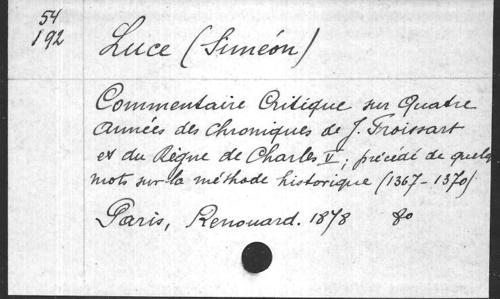 54
192
Luce (Siméon)
Commentaire Critique sur Quatre
Années des Chroniques de J. Froissart
et du Règne de Charles V; précédé de quelq
mots sur la méthode historique (1367-1370)
Paris, Renouard. 1878 80